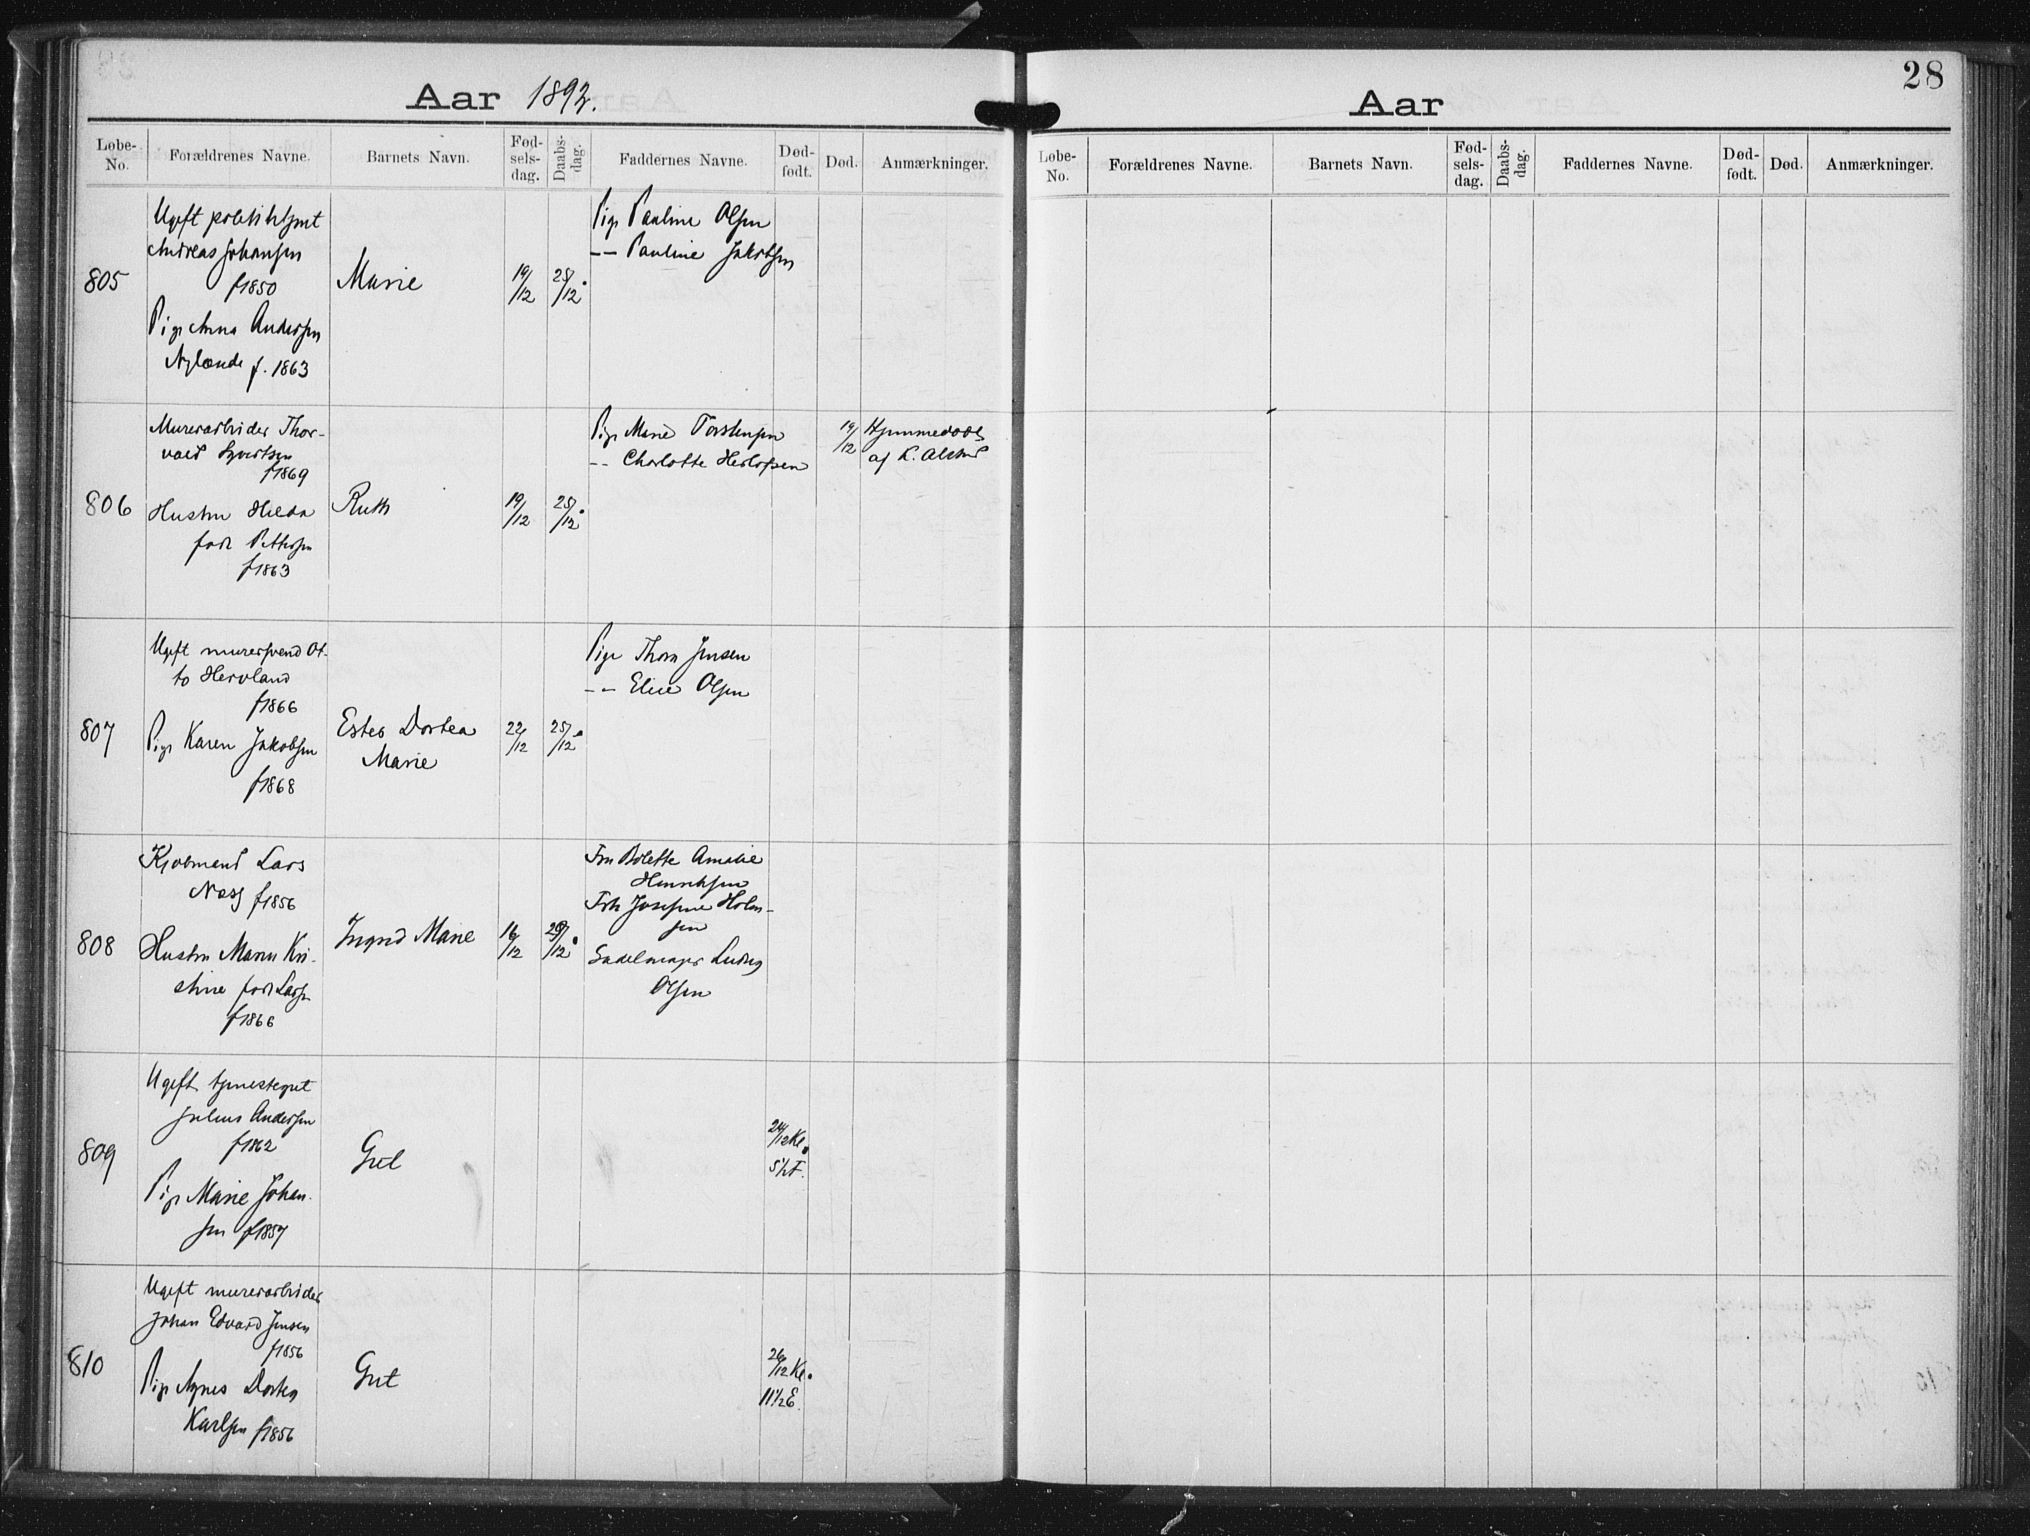 Aar 1892.
Løbe-
No.
Forældrenes Navne.
Barnets Navn.
Fød-
sels-
dag.
Daabs-
dag.
Faddernes Navne.
Død-
født.
Død.
Anmærkninger.
805
Ugift
Andreas Johansen
f1850
Pige Anna Andersen
Nylænde f. 1863
Marie
19/12
25/12
Pige Pauline Olsen
-- Pauline Jakobsen
806
Murerarbeider Thor-
vald Syvertsen
f1869
Hustru Hilda
født Pettersen
f1863
Ruth
19/12
25/12
Pige Marie Torstensen
-- Charlotte Herlofsen
19/12
Hjemmedøbt
af K.
807
Ugift murersvend Ot-
to Hervland
f1866
Pige Karen Jakobsen
f1868
Ester Dortea
Marie
22/12
25/12
Pige Thora Jensen
-- Elise Olsen
808
Kjøbmand Lars
Næss f1856
Hustru Maren Kri-
stine født Larsen
f1866
Ingrid Marie
16/12
/12
Fru Bolette Amalie
Henriksen
Frk Josefine Holm-
sen
Sadelmager Ludvig
Olsen
809
Ugift tjenestegut
Julius Andersen
f1862
Pige Marie Johan-
sen f1857
Gut
24/12 Kl.
5½ F.
810
Ugift murerarbeider
Johan Edvard Jensen
f1856
Pige Agnes Dortea
Karlsen f1856
Gut
26/12 Kl.
11½ E.
28
Aar
Løbe-
No.
Forældrenes Navne.
Barnets Navn.
Fød-
sels-
dag.
Daabs-
dag.
Faddernes Navne.
Død-
født.
Død.
Anmærkninger.